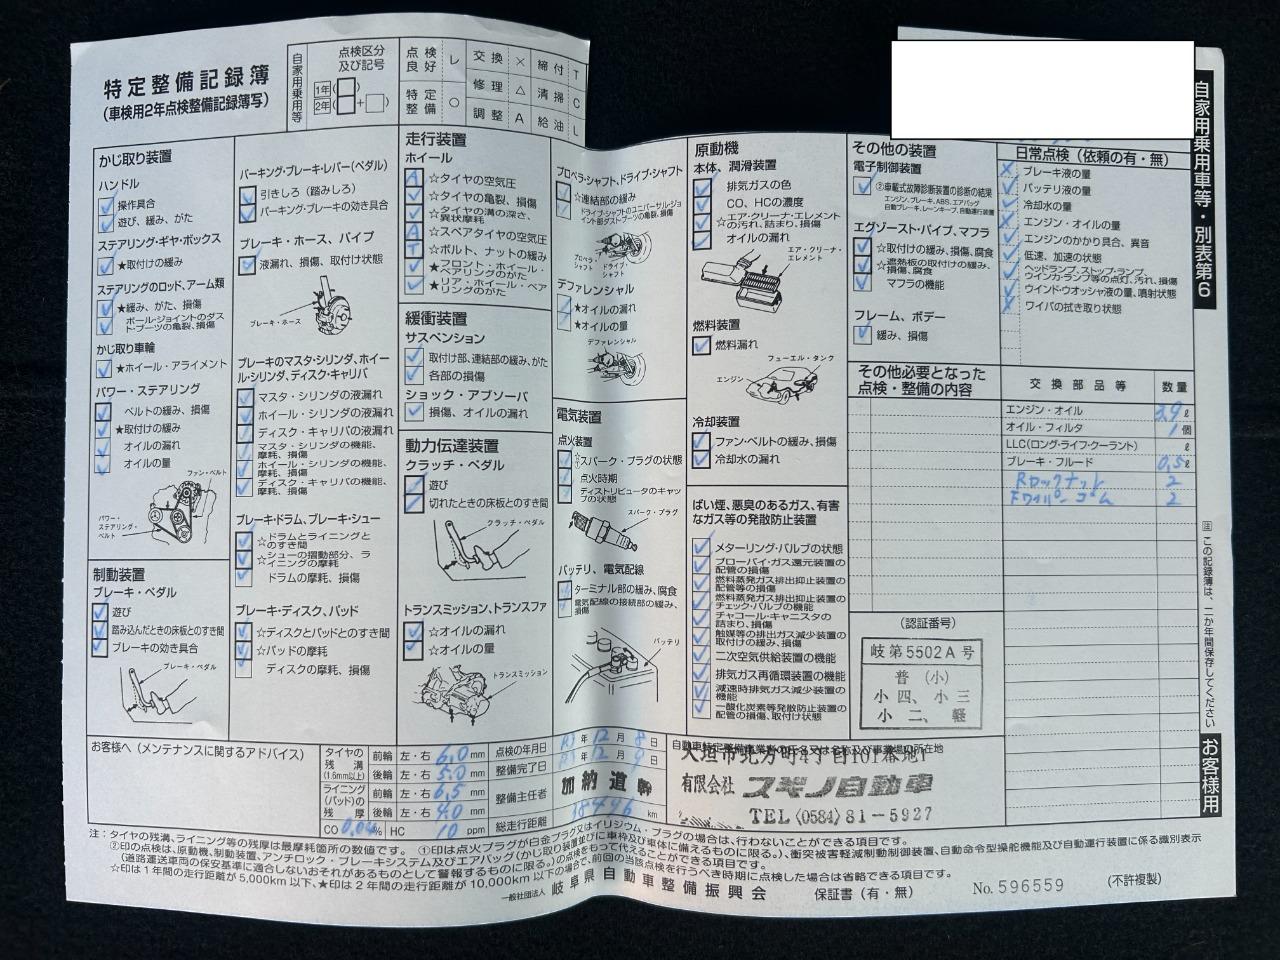 特定整備記録簿
(車検用2年点検整備記録簿写)
自家用乗用等
点検区分
及び記号
1年( )
2年( + )
点検良好 レ 交換 × 締付 T
特定整備 ○ 修理 △ 清掃 C
調整 A 給油 L
かじ取り装置
ハンドル
操作具合
遊び、緩み、がた
ステアリング・ギヤ・ボックス
★取付けの緩み
ステアリングのロッド、アーム類
★緩み、がた、損傷
ボール・ジョイントのダストブーツの亀裂、損傷
かじ取り車輪
★ホイール・アライメント
パワー・ステアリング
ベルトの緩み、損傷
★取付けの緩み
オイルの漏れ
オイルの量
ファン・ベルト
パワー・ステアリング・ベルト
制動装置
ブレーキ・ペダル
遊び
踏み込んだときの床板とのすき間
ブレーキの効き具合
ブレーキ・ペダル
パーキング・ブレーキ・レバー(ペダル)
引きしろ(踏みしろ)
パーキング・ブレーキの効き具合
ブレーキ・ホース、パイプ
液漏れ、損傷、取付け状態
ブレーキ・ホース
ブレーキのマスタ・シリンダ、ホイール・シリンダ、ディスク・キャリパ
マスタ・シリンダの液漏れ
ホイール・シリンダの液漏れ
ディスク・キャリパの液漏れ
マスタ・シリンダの機能、摩耗、損傷
ホイール・シリンダの機能、摩耗、損傷
ディスク・キャリパの機能、摩耗、損傷
ブレーキ・ドラム、ブレーキ・シュー
☆ドラムとライニングとのすき間
☆シューの摺動部分、ライニングの摩耗
ドラムの摩耗、損傷
ブレーキ・ディスク、パッド
☆ディスクとパッドとのすき間
☆パッドの摩耗
ディスクの摩耗、損傷
走行装置
ホイール
A ☆タイヤの空気圧
☆タイヤの亀裂、損傷
☆タイヤの溝の深さ、異状摩耗
A ☆スペアタイヤの空気圧
T ☆ボルト、ナットの緩み
★フロント・ホイール・ベアリングのがた
★リア・ホイール・ベアリングのがた
緩衝装置
サスペンション
取付け部、連結部の緩み、がた
各部の損傷
ショック・アブソーバ
損傷、オイルの漏れ
動力伝達装置
クラッチ・ペダル
遊び
切れたときの床板とのすき間
クラッチ・ペダル
トランスミッション、トランスファ
☆オイルの漏れ
☆オイルの量
トランスミッション
プロペラ・シャフト、ドライブ・シャフト
☆連結部の緩み
ドライブ・シャフトのユニバーサル・ジョイント部ダストブーツの亀裂、損傷
プロペラ・シャフト
ドライブ・シャフト
デファレンシャル
★オイルの漏れ
★オイルの量
デファレンシャル
電気装置
点火装置
スパーク・プラグの状態
点火時期
ディストリビュータのキャップの状態
スパーク・プラグ
バッテリ、電気配線
ターミナル部の緩み、腐食
電気配線の接続部の緩み、損傷
バッテリ
原動機
本体、潤滑装置
排気ガスの色
CO、HCの濃度
☆エア・クリーナ・エレメントの汚れ、詰まり、損傷
オイルの漏れ
エア・クリーナ・エレメント
燃料装置
燃料漏れ
フューエル・タンク
エンジン
冷却装置
ファン・ベルトの緩み、損傷
冷却水の漏れ
ばい煙、悪臭のあるガス、有害なガス等の発散防止装置
メターリング・バルブの状態
ブローバイ・ガス還元装置の配管の損傷
燃料蒸発ガス排出抑止装置の配管等の損傷
燃料蒸発ガス排出抑止装置のチェック・バルブの機能
チャコール・キャニスタの詰まり、損傷
触媒等の排出ガス減少装置の取付けの緩み、損傷
二次空気供給装置の機能
排気ガス再循環装置の機能
減速時排気ガス減少装置の機能
一酸化炭素等発散防止装置の配管の損傷、取付け状態
その他の装置
電子制御装置
②車載式故障診断装置の診断の結果
エンジン、ブレーキ、ABS、エアバッグ
自動ブレーキ、レーンキープ、自動運行装置
エグゾースト・パイプ、マフラ
☆取付けの緩み、損傷、腐食
☆遮熱板の取付けの緩み、損傷、腐食
マフラの機能
フレーム、ボデー
緩み、損傷
その他必要となった点検・整備の内容
(認証番号)
岐第5502A号
普(小)
小四、小三
小二、軽
日常点検(依頼の有・無)
ブレーキ液の量
バッテリ液の量
冷却水の量
エンジン・オイルの量
エンジンのかかり具合、異音
低速、加速の状態
ヘッドランプ、ストップ・ランプ、ウインカ・ランプ等の点灯、汚れ、損傷
ウインド・ウオッシャ液の量、噴射状態
ワイパの拭き取り状態
交換部品等 数量
エンジン・オイル 3.9 ℓ
オイル・フィルタ 1 個
LLC(ロング・ライフ・クーラント) ℓ
ブレーキ・フルード 0.5 ℓ
Rロックナット 2
Fワイパーゴム 2
自家用乗用車等・別表第6
注 この記録簿は、二か年間保存してください
お客様用
お客様へ(メンテナンスに関するアドバイス)
タイヤの残溝(1.6mm以上) 前輪 左・右 6.0 mm
後輪 左・右 5.0 mm
ライニング(パッド)の残厚 前輪 左・右 6.5 mm
後輪 左・右 4.0 mm
CO 0.04 % HC 10 ppm
点検の年月日 年 12 月 8 日
整備完了日 年 12 月 9 日
整備主任者 加納道幹
総走行距離 38446 km
自動車特定整備事業者の氏名又は名称及び事業場の所在地
大垣市北方町4丁目101番地1
有限会社 スギノ自動車
TEL (0584)81-5927
注:タイヤの残溝、ライニング等の残厚は最摩耗箇所の数値です。①印は点火プラグが白金プラグ又はイリジウム・プラグの場合は、行わないことができる項目です。
②印の点検は、原動機、制動装置、アンチロック・ブレーキシステム及びエアバッグ(かじ取り装置並びに車枠及び車体に備えるものに限る。)、衝突被害軽減制動制御装置、自動命令型操舵機能及び自動運行装置に係る識別表示
(道路運送車両の保安基準に適合しないおそれがあるものとして警報するものに限る。)の点検をもって代えることができる項目です。
☆印は1年間の走行距離が5,000km以下、★印は2年間の走行距離が10,000km以下の場合で、前回の当該点検を行うべき時期に点検した場合は省略できる項目です。
一般社団法人 岐阜県自動車整備振興会 保証書(有・無) No.596559 (不許複製)